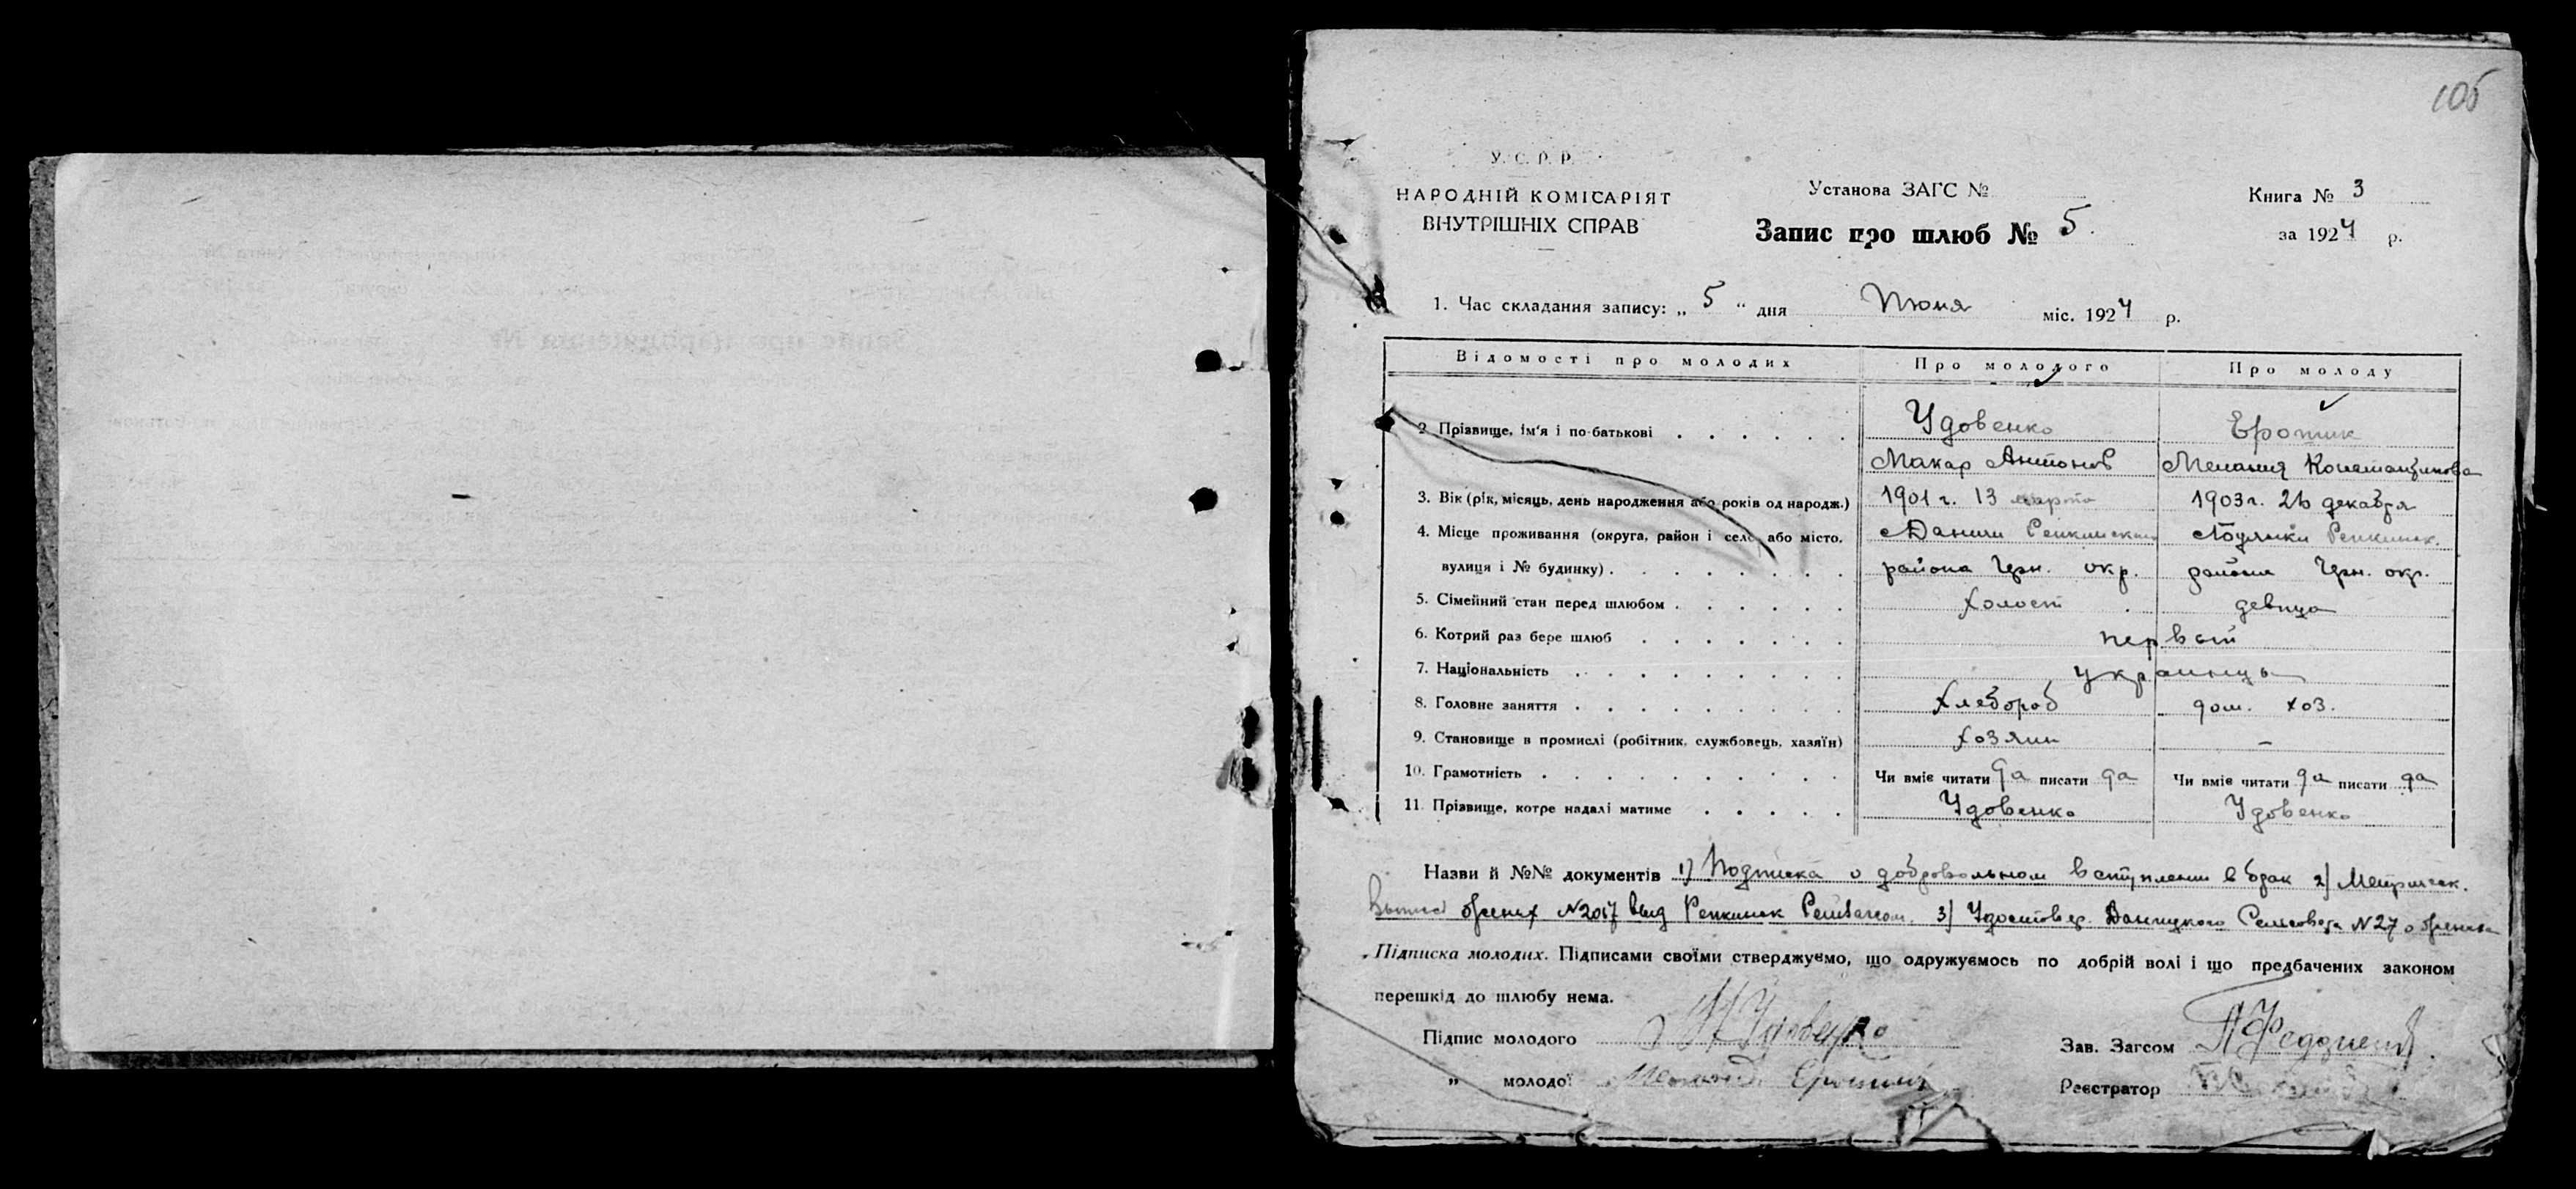 105
У. С. Р. Р.
НАРОДНІЙ КОМІСАРІЯТ
ВНУТРІШНІХ СПРАВ
Установа ЗАГС №
Запис про шлюб № 5.
Книга № 3
за 1924 р.
1. Час складання запису: „ 5 “ дня Июня міс. 1924 р.
Відомості про молодих Про молодого Про молоду
2. Прізвище, ім'я і по-батькові Удовенко Еротик
Макар Антонов Мелания Константинова
3. Вік (рік, місяць, день народження або років од народж.) 1901 г. 13 марта 1903 г. 26 декабря
4. Місце проживання (округа, район і село або місто, Даничи Репкинского Репкинск.
вулиця і № будинку) района Черн. окр. района Черн. окр.
5. Сімейний стан перед шлюбом холост девица
6. Котрий раз бере шлюб первый
7. Національність украинцы
8. Головне заняття Хлебороб дом. хоз.
9. Становище в промислі (робітник, службовець, хазяїн) хозяин –
10. Грамотність Чи вміє читати да писати да Чи вміє читати да писати да
11. Прізвище, котре надалі матиме Удовенко Удовенко
Назви й №№ документів 1) Подписка о добровольном вступлении в брак 2) Метрическ.
выпись №2017 выд Репкинск 3) Удостовер. Даницкого Сельсовета №27 о
Підписка молодих. Підписами своїми стверджуємо, що одружуємось по добрій волі і що предбачених законом
перешкід до шлюбу нема.
Підпис молодого М Удовенко
Зав. Загсом
„ молодої Еротик
Реєстратор